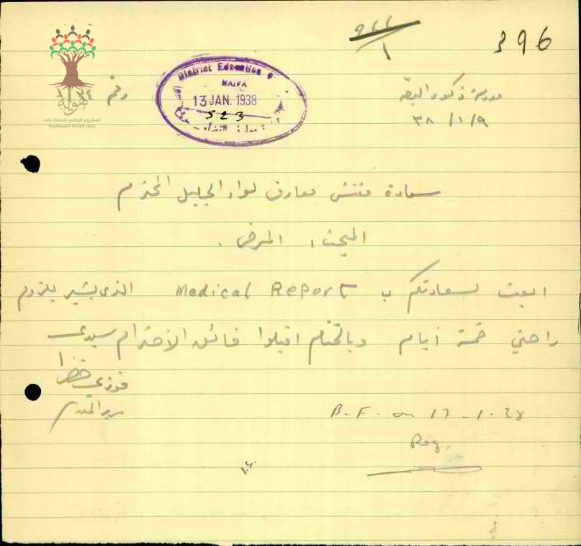 396
District Education O
HAIFA
13 JAN. 1938
523
رقم
مدرسة ذكور
٣٨/١/٩
سعادة مفتش معارف لواء الجليل المحترم
المبحث: المرض.
ابعث لسعادتكم ب Medical Report الذي يشير بلزوم
راحتي خمسة أيام وبالختام اقبلوا فائق الاحترام سيدي
فوزي
B.F. on 17.1.38